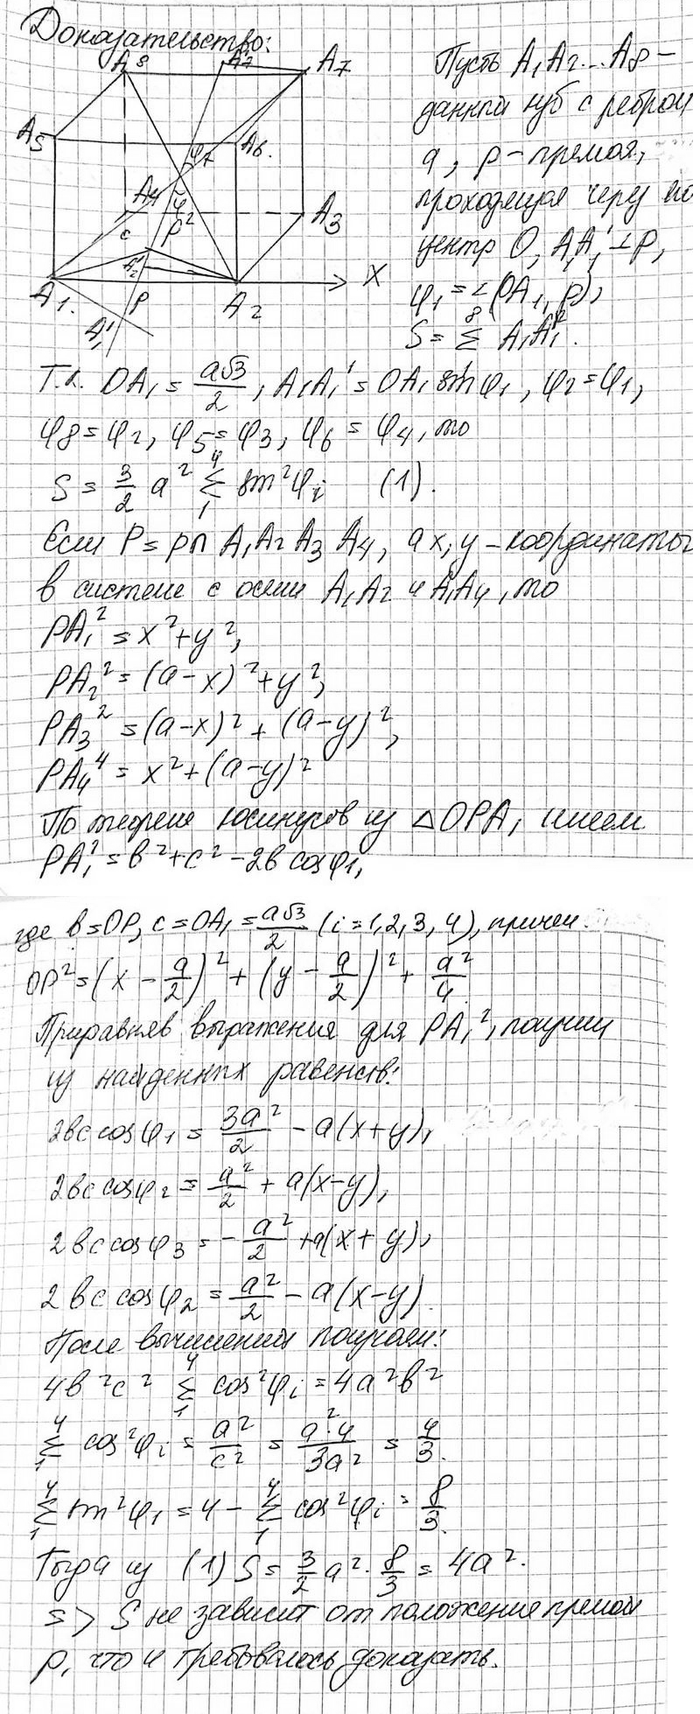 Доказательство:
Пусть A₁A₂...A₈ –
данный куб с ребром
a, p – прямая,
проходящая через его
центр O, A₁A₁' ⊥ p,
φ₁ = ∠(OA₁, p),
S = Σ₁⁸ A₁A₁'².
A₈ A₇' A₇
A₅ A₆ φ₇
A₄ φ A₃
c P 2
A₂' X
A₁ P A₂
A₁'
Т.к. OA₁ = a√3/2, A₁A₁' = OA₁ sin φ₁, φ₂ = φ₁,
φ₈ = φ₂, φ₅ = φ₃, φ₆ = φ₄, то
S = 3/2 a² Σ₁⁴ sin²φᵢ (1).
Если P = p∩A₁A₂A₃A₄, а x, y – координаты
в системе с осями A₁A₂ и A₁A₄, то
PA₁² = x² + y²,
PA₂² = (a – x)² + y²,
PA₃² = (a – x)² + (a – y)²,
PA₄⁴ = x² + (a – y)²
По теореме косинусов из △OPA₁ имеем
PA₁² = b² + c² – 2b cos φ₁,
где b = OP, c = OA₁ = a√3/2 (i = 1, 2, 3, 4), причем.
OP² = (x – a/2)² + (y – a/2)² + a²/4
Приравняв выражения для PA₁², получим
из найденных равенств:
2bc cos φ₁ = 3a²/2 – a(x + y),
2bc cos φ₂ = a²/2 + a(x – y),
2bc cos φ₃ = – a²/2 + a(x + y),
2bc cos φ₂ = a²/2 – a(x – y).
После вычислений получаем:
4b²c² Σ₁⁴ cos²φᵢ = 4a²b²
Σ₁⁴ cos²φᵢ = a²/c² = a²·4/3a² = 4/3.
Σ₁⁴ sin²φ₁ = 4 – Σ₁⁴ cos²φᵢ = 8/3.
Тогда из (1) S = 3/2 a² · 8/3 = 4a².
=> S не зависит от положения прямой
p, что и требовалось доказать.